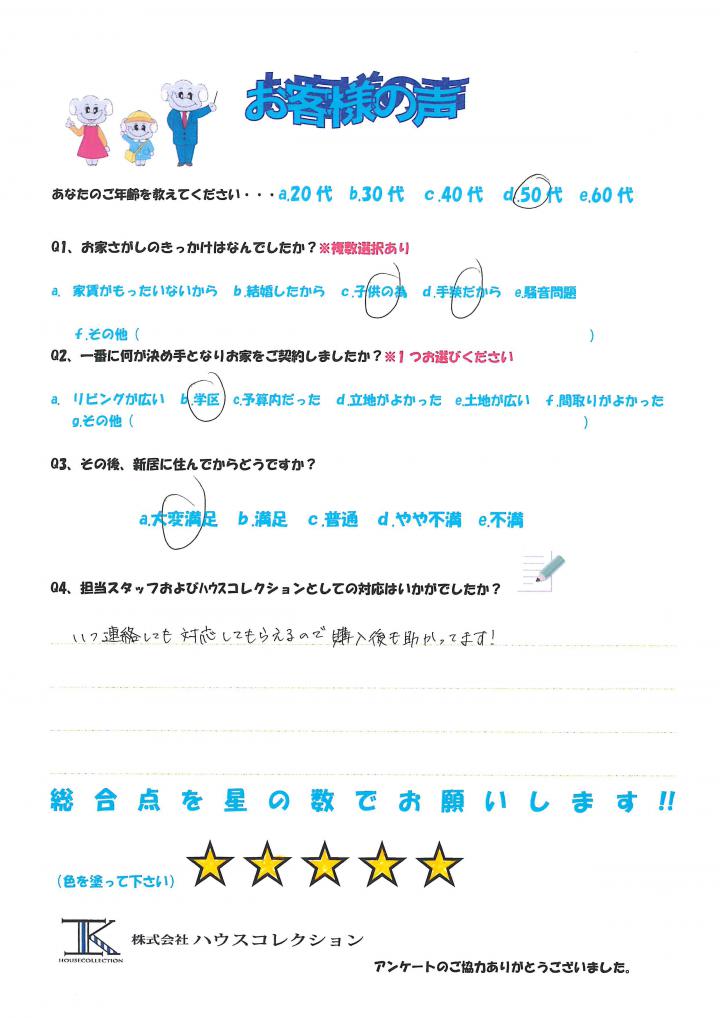 お客様の声
あなたのご年齢を教えてください・・・a.20代 b.30代 c.40代 d.50代 e.60代
Q1、お家さがしのきっかけはなんでしたか？※複数選択あり
a. 家賃がもったいないから b.結婚したから c.子供の為 d.手狭だから e.騒音問題
f.その他（ ）
Q2、一番に何が決め手となりお家をご契約しましたか？※1つお選びください
a. リビングが広い b.学区 c.予算内だった d.立地がよかった e.土地が広い f.間取りがよかった
g.その他（ ）
Q3、その後、新居に住んでからどうですか？
a.大変満足 b.満足 c.普通 d.やや不満 e.不満
Q4、担当スタッフおよびﾊｳｽコレクションとしての対応はいかがでしたか？
いつ連絡しても対応してもらえるので購入後も助かってます！
総合点を星の数でお願いします!!
（色を塗って下さい）
HOUSECOLLECTION
株式会社 ハウスコレクション
アンケートのご協力ありがとうございました。